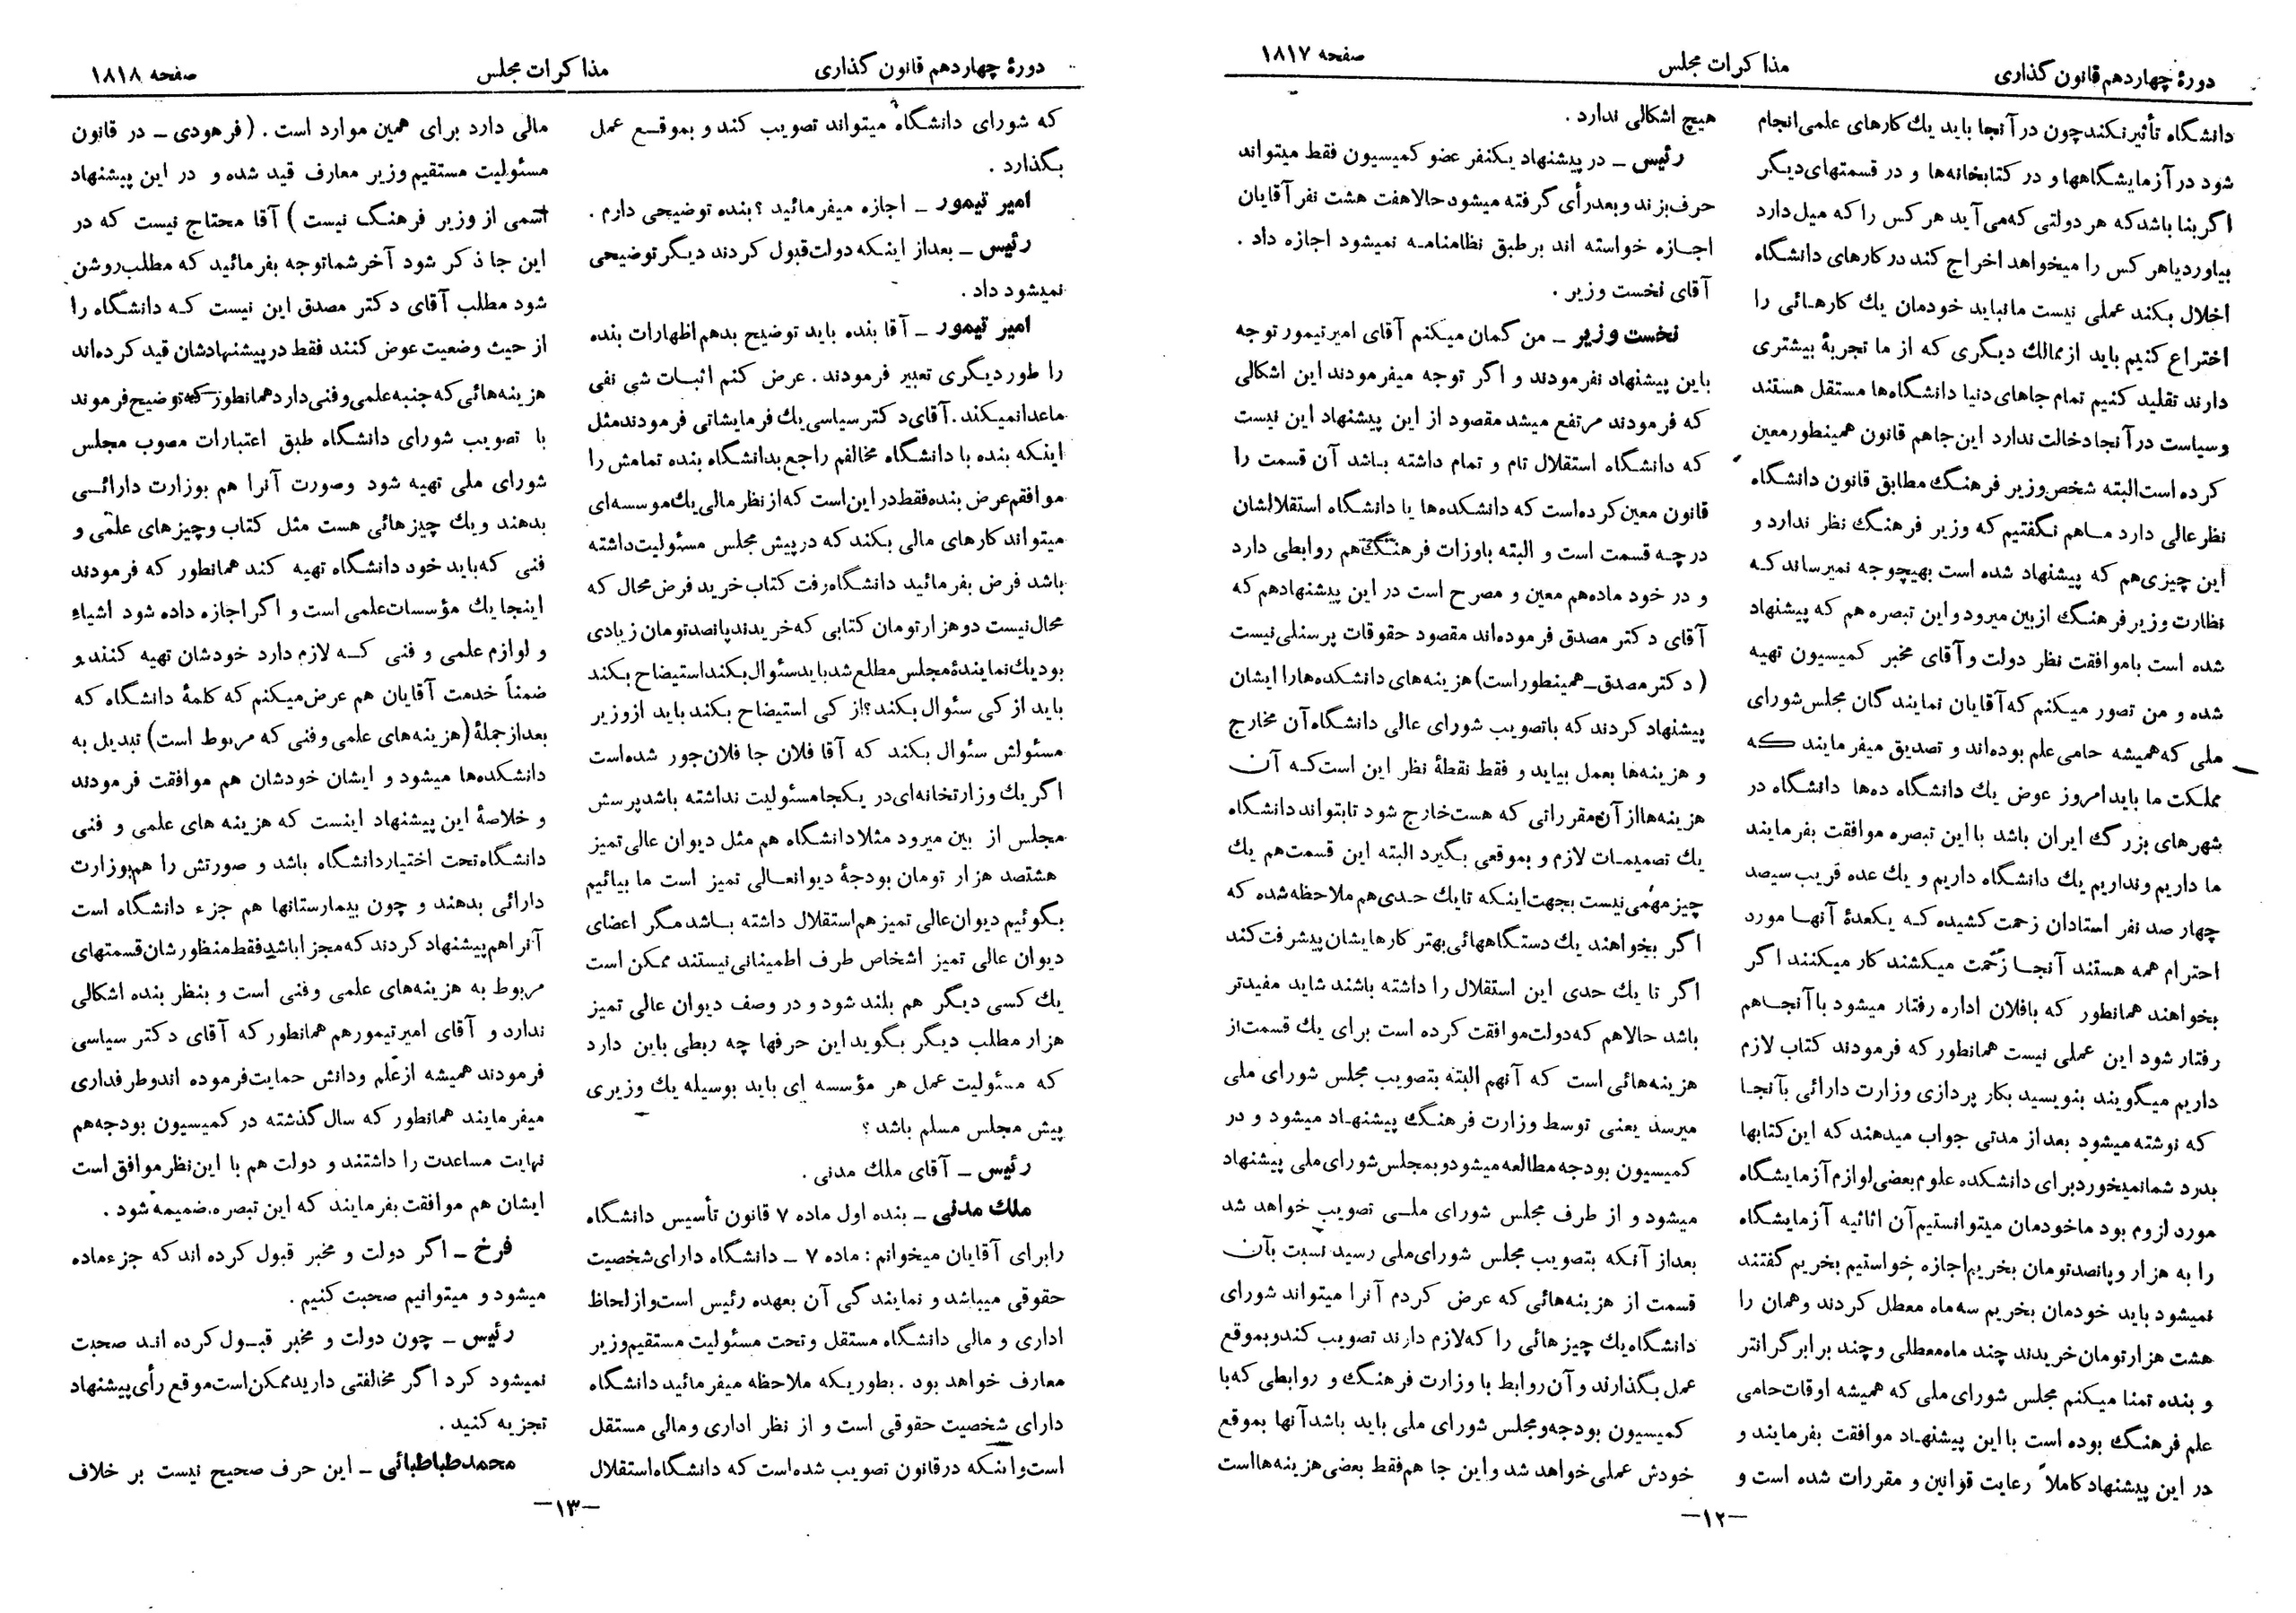 دورهٔ چهاردهم قانون گذاری
مذاکرات مجلس
صفحه ۱۸۱۷
دانشگاه تأثیر نکند چون در آنجا باید یك کارهای علمی انجام
شود در آزمایشگاهها و در کتابخانه‌ها و در قسمتهای دیگر
اگر بنا باشد که هر دولتی که می‌آید هر کس را که میل دارد
بیاورد یا هر کس را میخواهد اخراج کند در کارهای دانشگاه
اخلال بکند عملی نیست ما نباید خودمان یك کارهائی را
اختراع کنیم باید از ممالك دیگری که از ما تجربهٔ بیشتری
دارند تقلید کنیم تمام جاهای دنیا دانشگاه‌ها مستقل هستند
و سیاست در آنجا دخالت ندارد این جا هم قانون همینطور معین
کرده است البته شخص وزیر فرهنگ مطابق قانون دانشگاه
نظر عالی دارد ما هم نگفتیم که وزیر فرهنگ نظر ندارد و
این چیزی هم که پیشنهاد شده است بهیچوجه نمیرساند که
نظارت وزیر فرهنگ از بین میرود و این تبصره هم که پیشنهاد
شده است با موافقت نظر دولت و آقای مخبر کمیسیون تهیه
شده و من تصور میکنم که آقایان نمایندگان مجلس شورای
ملی که همیشه حامی علم بوده‌اند و تصدیق میفرمایند که
مملکت ما باید امروز عوض یك دانشگاه ده‌ها دانشگاه در
شهرهای بزرگ ایران باشد با این تبصره موافقت بفرمایند
ما داریم و نداریم یك دانشگاه داریم و یك عده قریب سیصد
چهار صد نفر استادان زحمت کشیده که یکعدهٔ آنها مورد
احترام همه هستند آنجا زحمت میکشند کار میکنند اگر
بخواهند همانطور که با فلان اداره رفتار میشود با آنجا هم
رفتار شود این عملی نیست همانطور که فرمودند کتاب لازم
داریم میگویند بنویسید بکار پردازی وزارت دارائی بآنجا
که نوشته میشود بعد از مدتی جواب میدهند که این کتابها
بدرد شما نمیخورد برای دانشکده علوم بعضی لوازم آزمایشگاه
مورد لزوم بود ما خودمان میتوانستیم آن اثاثیه آزمایشگاه
را به هزار و پانصد تومان بخریم اجازه خواستیم بخریم گفتند
نمیشود باید خودمان بخریم سه ماه معطل کردند و همان را
هشت هزار تومان خریدند چند ماه معطلی و چند برابر گرانتر
و بنده تمنا میکنم مجلس شورای ملی که همیشه اوقات حامی
علم فرهنگ بوده است با این پیشنهاد موافقت بفرمایند و
در این پیشنهاد کاملاً رعایت قوانین و مقررات شده است و
هیچ اشکالی ندارد .
رئیس ـ در پیشنهاد یکنفر عضو کمیسیون فقط میتواند
حرف بزند و بعد رأی گرفته میشود حالا هفت هشت نفر آقایان
اجازه خواسته اند بر طبق نظامنامه نمیشود اجازه داد .
آقای نخست وزیر .
نخست وزیر ـ من گمان میکنم آقای امیر تیمور توجه
باین پیشنهاد نفرمودند و اگر توجه میفرمودند این اشکالی
که فرمودند مرتفع میشد مقصود از این پیشنهاد این نیست
که دانشگاه استقلال تام و تمام داشته باشد آن قسمت را
قانون معین کرده است که دانشکده‌ها یا دانشگاه استقلالشان
در چه قسمت است و البته باوزات فرهنگ هم روابطی دارد
و در خود ماده هم معین و مصرح است در این پیشنهاد هم که
آقای دکتر مصدق فرموده‌اند مقصود حقوقات پرسنلی نیست
(دکتر مصدق ـ همینطور است) هزینه‌های دانشکده‌ها را ایشان
پیشنهاد کردند که با تصویب شورای عالی دانشگاه آن مخارج
و هزینه‌ها بعمل بیاید و فقط نقطهٔ نظر این است که آن
هزینه‌ها از آن مقرراتی که هست خارج شود تا بتواند دانشگاه
یك تصمیمات لازم و بموقعی بگیرد البته این قسمت هم یك
چیز مهمی نیست بجهت اینکه تا یك حدی هم ملاحظه شده که
اگر بخواهند یك دستگاههائی بهتر کارهایشان پیشرفت کند
اگر تا یك حدی این استقلال را داشته باشند شاید مفیدتر
باشد حالا هم که دولت موافقت کرده است برای یك قسمت از
هزینه‌هائی است که آنهم البته بتصویب مجلس شورای ملی
میرسد یعنی توسط وزارت فرهنگ پیشنهاد میشود و در
کمیسیون بودجه مطالعه میشود و بمجلس شورای ملی پیشنهاد
میشود و از طرف مجلس شورای ملی تصویب خواهد شد
بعد از آنکه بتصویب مجلس شورای ملی رسید نسبت بآن
قسمت از هزینه‌هائی که عرض کردم آنرا میتواند شورای
دانشگاه یك چیزهائی را که لازم دارند تصویب کند و بموقع
عمل بگذارند و آن روابط با وزارت فرهنگ و روابطی که با
کمیسیون بودجه و مجلس شورای ملی باید باشد آنها بموقع
خودش عملی خواهد شد و این جا هم فقط بعضی هزینه‌ها است
ـ۱۲ـ
دورهٔ چهاردهم قانون گذاری
مذاکرات مجلس
صفحه ۱۸۱۸
که شورای دانشگاه میتواند تصویب کند و بموقع عمل
بگذارد .
امیر تیمور ـ اجازه میفرمائید ؟ بنده توضیحی دارم .
رئیس ـ بعد از اینکه دولت قبول کردند دیگر توضیحی
نمیشود داد .
امیر تیمور ـ آقا بنده باید توضیح بدهم اظهارات بنده
را طور دیگری تعبیر فرمودند . عرض کنم اثبات شی نفی
ماعدا نمیکند . آقای دکتر سیاسی یك فرمایشاتی فرمودند مثل
اینکه بنده با دانشگاه مخالفم راجع بدانشگاه بنده تمامش را
موافقم عرض بنده فقط در این است که از نظر مالی یك موسسه‌ای
میتواند کارهای مالی بکند که در پیش مجلس مسئولیت داشته
باشد فرض بفرمائید دانشگاه رفت کتاب خرید فرض محال که
محال نیست دو هزار تومان کتابی که خریدند پانصد تومان زیادی
بود یك نمایندهٔ مجلس مطلع شد باید سئوال بکند استیضاح بکند
باید از کی سئوال بکند؟ از کی استیضاح بکند باید از وزیر
مسئولش سئوال بکند که آقا فلان جا فلان جور شده است
اگر یك وزارتخانه‌ای در یکجا مسئولیت نداشته باشد پرسش
مجلس از بین میرود مثلا دانشگاه هم مثل دیوان عالی تمیز
هشتصد هزار تومان بودجهٔ دیوانعالی تمیز است ما بیائیم
بگوئیم دیوان عالی تمیز هم استقلال داشته باشد مگر اعضای
دیوان عالی تمیز اشخاص طرف اطمینانی نیستند ممکن است
یك کسی دیگر هم بلند شود و در وصف دیوان عالی تمیز
هزار مطلب دیگر بگوید این حرفها چه ربطی باین دارد
که مسئولیت عمل هر مؤسسه ای باید بوسیله یك وزیری
پیش مجلس مسلم باشد ؟
رئیس ـ آقای ملك مدنی .
ملك مدنی ـ بنده اول ماده ۷ قانون تأسیس دانشگاه
را برای آقایان میخوانم : ماده ۷ ـ دانشگاه دارای شخصیت
حقوقی میباشد و نمایندگی آن بعهده رئیس است و از لحاظ
اداری و مالی دانشگاه مستقل و تحت مسئولیت مستقیم وزیر
معارف خواهد بود . بطوریکه ملاحظه میفرمائید دانشگاه
دارای شخصیت حقوقی است و از نظر اداری و مالی مستقل
است و اینکه در قانون تصویب شده است که دانشگاه استقلال
مالی دارد برای همین موارد است . (فرهودی ـ در قانون
مسئولیت مستقیم وزیر معارف قید شده و در این پیشنهاد
اسمی از وزیر فرهنگ نیست) آقا محتاج نیست که در
این جا ذکر شود آخر شما توجه بفرمائید که مطلب روشن
شود مطلب آقای دکتر مصدق این نیست که دانشگاه را
از حیث وضعیت عوض کنند فقط در پیشنهادشان قید کرده‌اند
هزینه‌هائی که جنبه علمی و فنی دارد همانطور که توضیح فرموند
با تصویب شورای دانشگاه طبق اعتبارات مصوب مجلس
شورای ملی تهیه شود وصورت آنرا هم بوزارت دارائی
بدهند و یك چیزهائی هست مثل کتاب و چیزهای علمی و
فنی که باید خود دانشگاه تهیه کند همانطور که فرمودند
اینجا یك مؤسسات علمی است و اگر اجازه داده شود اشیاء
و لوازم علمی و فنی که لازم دارد خودشان تهیه کنند و
ضمناً خدمت آقایان هم عرض میکنم که کلمهٔ دانشگاه که
بعد از جملهٔ (هزینه‌های علمی و فنی که مربوط است) تبدیل به
دانشکده‌ها میشود و ایشان خودشان هم موافقت فرمودند
و خلاصهٔ این پیشنهاد اینست که هزینه های علمی و فنی
دانشگاه تحت اختیار دانشگاه باشد و صورتش را هم بوزارت
دارائی بدهند و چون بیمارستانها هم جزء دانشگاه است
آنرا هم پیشنهاد کردند که مجزا باشد فقط منظورشان قسمتهای
مربوط به هزینه‌های علمی و فنی است و بنظر بنده اشکالی
ندارد و آقای امیر تیمور هم همانطور که آقای دکتر سیاسی
فرمودند همیشه از علم و دانش حمایت فرموده اند و طرفداری
میفرمایند همانطور که سال گذشته در کمیسیون بودجه هم
نهایت مساعدت را داشتند و دولت هم با این نظر موافق است
ایشان هم موافقت بفرمایند که این تبصره ضمیمه شود .
فرخ ـ اگر دولت و مخبر قبول کرده اند که جزء ماده
میشود و میتوانیم صحبت کنیم .
رئیس ـ چون دولت و مخبر قبول کرده اند صحبت
نمیشود کرد اگر مخالفتی دارید ممکن است موقع رأی پیشنهاد
تجزیه کنید .
محمد طباطبائی ـ این حرف صحیح نیست بر خلاف
ـ۱۳ـ